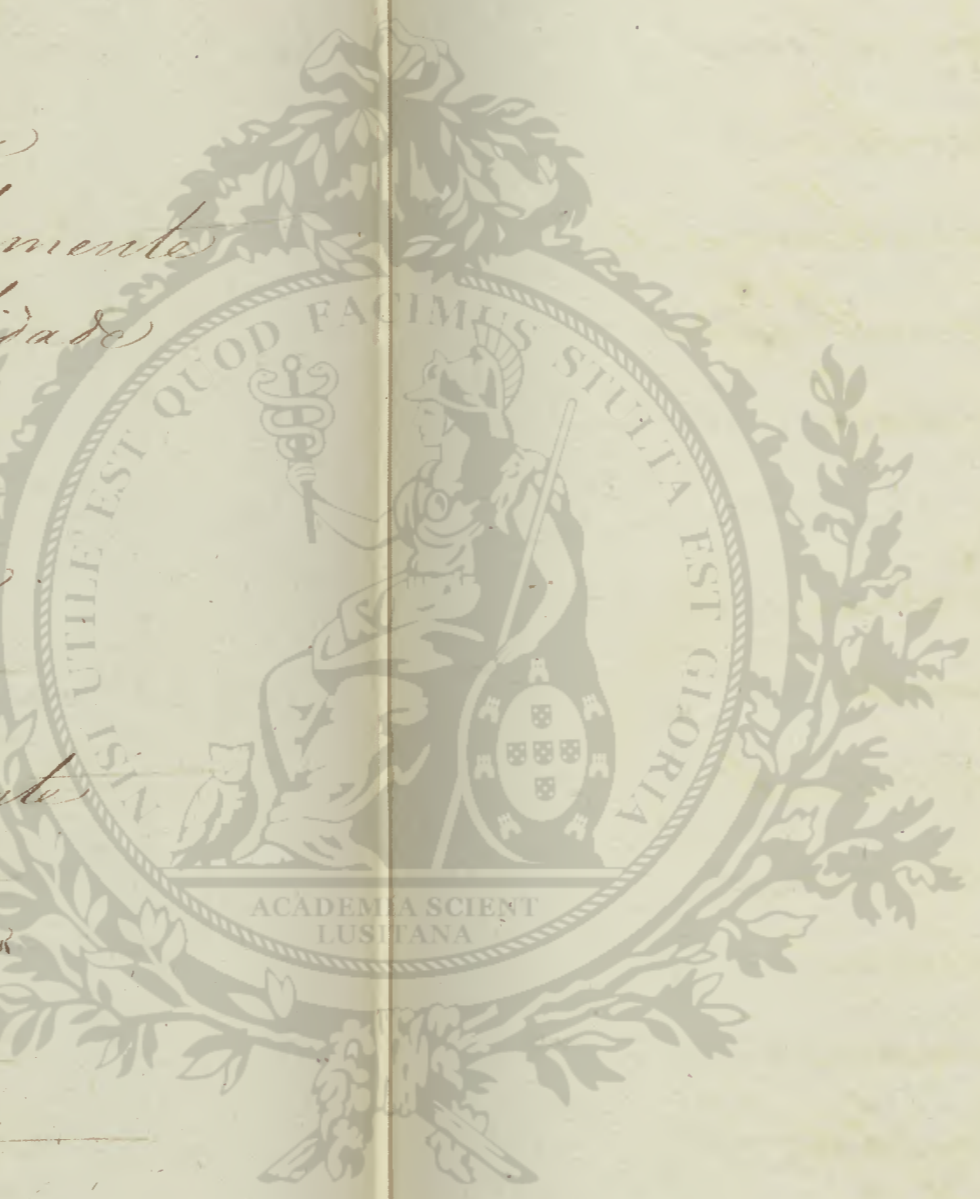 mente
idade
NISI UTILE EST QUOD FACIMUS STULTA EST GLORIA
ACADEMIA SCIENT
LUSITANA